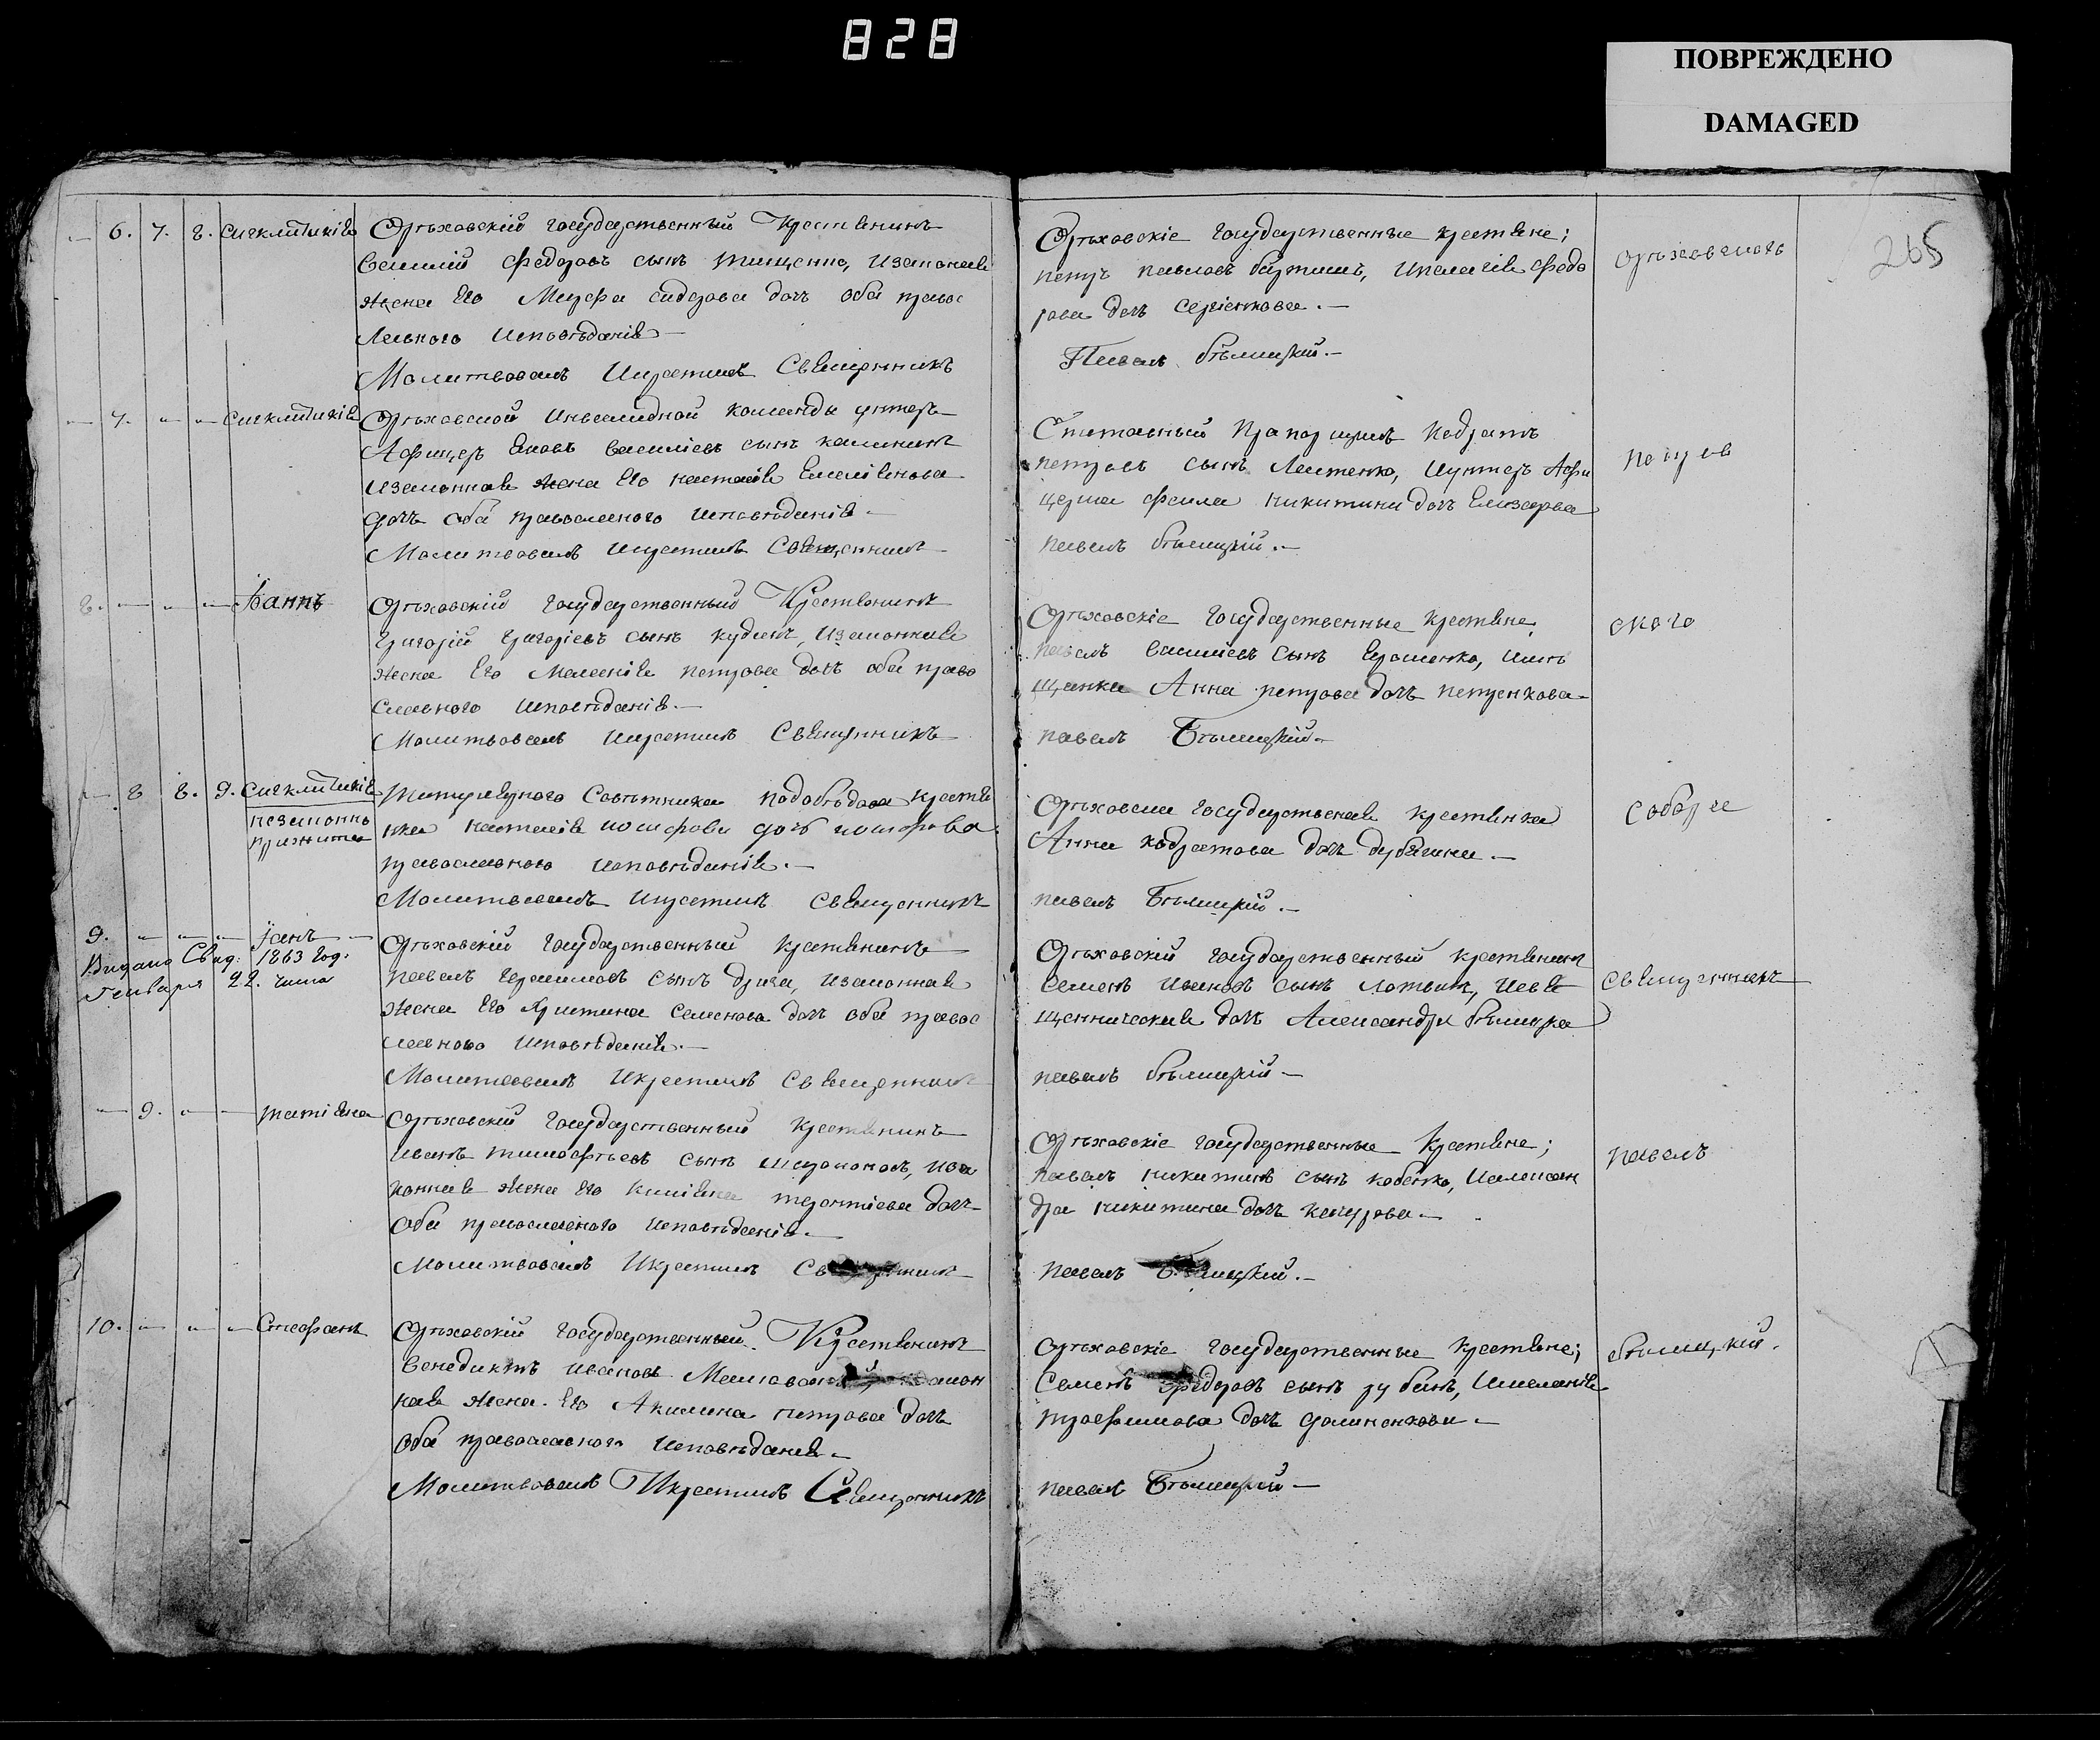 828
ПОВРЕЖДЕНО
DAMAGED
265
— 6. 7. 8. Сигклитикія
Орѣховскій государственный Крестянинъ
Василій Федоровъ сынъ Тищенко, изаконная
жена его Марфа Сидорова дочь оба право
славного исповѣданія —
Молитвовалъ Икрестилъ Священникъ
Орѣховскіе государственные крестяне;
Петръ Павловъ, Ипелагія Федо
рова дочь Сергіенкова. —
Павелъ Бѣлицкій. —
Орѣховской
— 7. — — Сигклитикія
Орѣховской Инвалидной команды унтеръ
Афицеръ Яковъ Василіевъ сынъ Калининъ
изаконная жена его Настасія Емеліянова
дочь оба православного исповѣданія —
Молитвовалъ Икрестилъ Священникъ
Прапорщикъ Кодратъ
Петровъ сынъ, Иунтеръ Афи
церша Фекла Никитина дочь Елизарова
Павелъ Бѣлицкій. —
8. — — — Іаннъ
Орѣховскій государственный Крестянинъ
Григорій Григоріевъ сынъ, Изаконная
жена его Маланія Петрова дочь оба право
славного исповѣданія. —
Молитвовалъ Икрестилъ Священникъ
Орѣховскіе государственные крестяне
Павелъ Василіевъ сынъ Ерошенко, Имѣ
щанка Анна Петрова дочь Петренкова —
Павелъ Бѣлицкій —
ского
— 8 8. 9. Сигклитикія
незаконно
прижита
Титулярного Совѣтника крестя
нка Настасія дочь
православного исповѣданія. —
Молитвовалъ Икрестилъ Священникъ
Орѣховская государственая крестянка
Анна Кодратова дочь —
Павелъ Бѣлицкій. —
Собора
9. — — — Іанъ —
Видано Свид: 1863 год:
Генваря 22. числа
Орѣховскій государственный крестянинъ
Павелъ Герасимовъ сынъ, изаконная
жена его Христина Семенова дочь оба право
славного исповѣданія. —
Молитвовалъ Икрестилъ Священникъ
Орѣховскій государственный крестянинъ
Семенъ Ивановъ сынъ, Исвя
щенническая дочь Александра Бѣлицка
Павелъ Бѣлицкій —
Священникъ
— 9. — — Татіяна
Орѣховскій государственный Крестянинъ
Иванъ Тимофѣевъ сынъ, иза
конная жена его Терентіева дочь
оба православного исповѣданія —
Молитвовалъ Икрестилъ
Орѣховскіе государственные Крестяне;
Павелъ Никитинъ сынъ, Иалексан
дра Никитина дочь —
Павелъ Бѣлицкій. —
Павелъ
10. — — — Стефанъ
Орѣховскій государственный Крестянинъ
Венедиктъ Ивановъ
ная жена его Акилина Петрова дочь
оба православного исповѣданія —
Молитвовалъ Икрестилъ Священникъ
Орѣховскіе государственные Крестяне;
Семенъ Федоровъ сынъ, Имеланія
Трофимова дочь —
Павелъ Бѣлицкій —
Бѣлицкій.